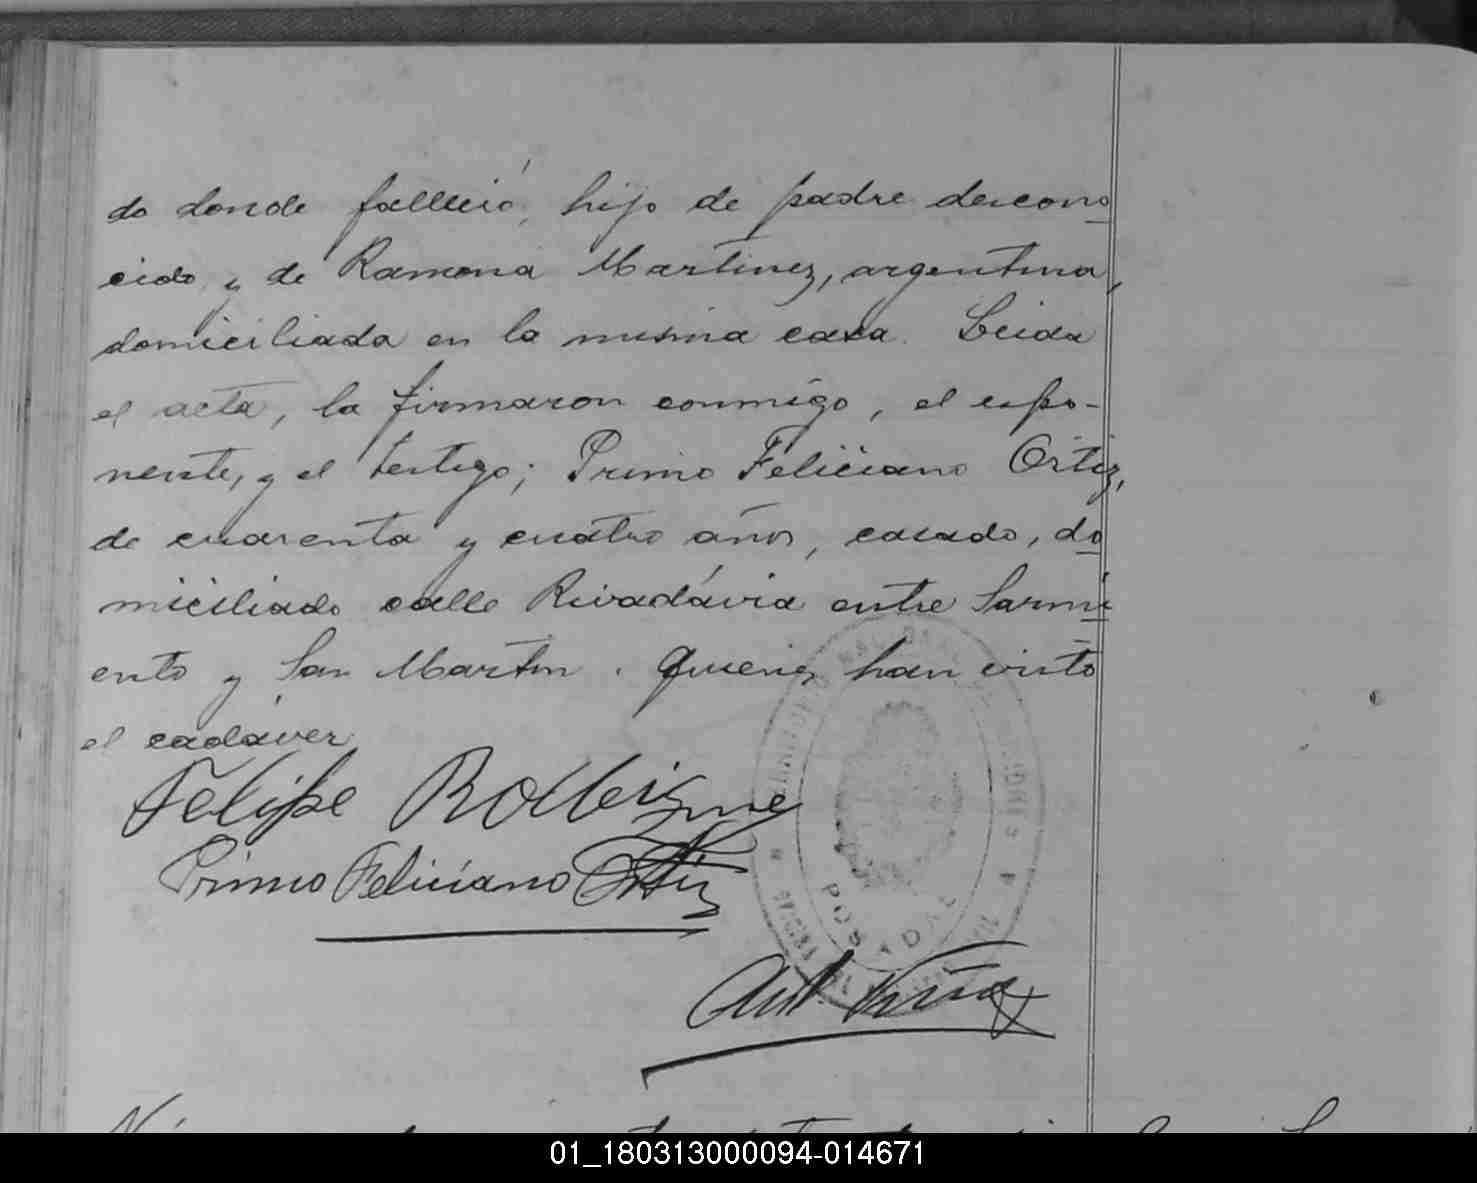 do donde falleció, hijo de padre descono
cido y de Ramona Martinez, argentina,
domiciliada en la misma casa. Leida
el acta, la firmaron conmigo, el expo-
nente, y el testigo; Primo Feliciano Ortiz,
de cuarenta y cuatro años, casado, do
miciliado calle Rivadávia entre Sarmi
ento y San Martin. Quienes han visto
el cadáver.
Felipe
Primo Feliciano Ortiz
POSADAS
01_180313000094-014671